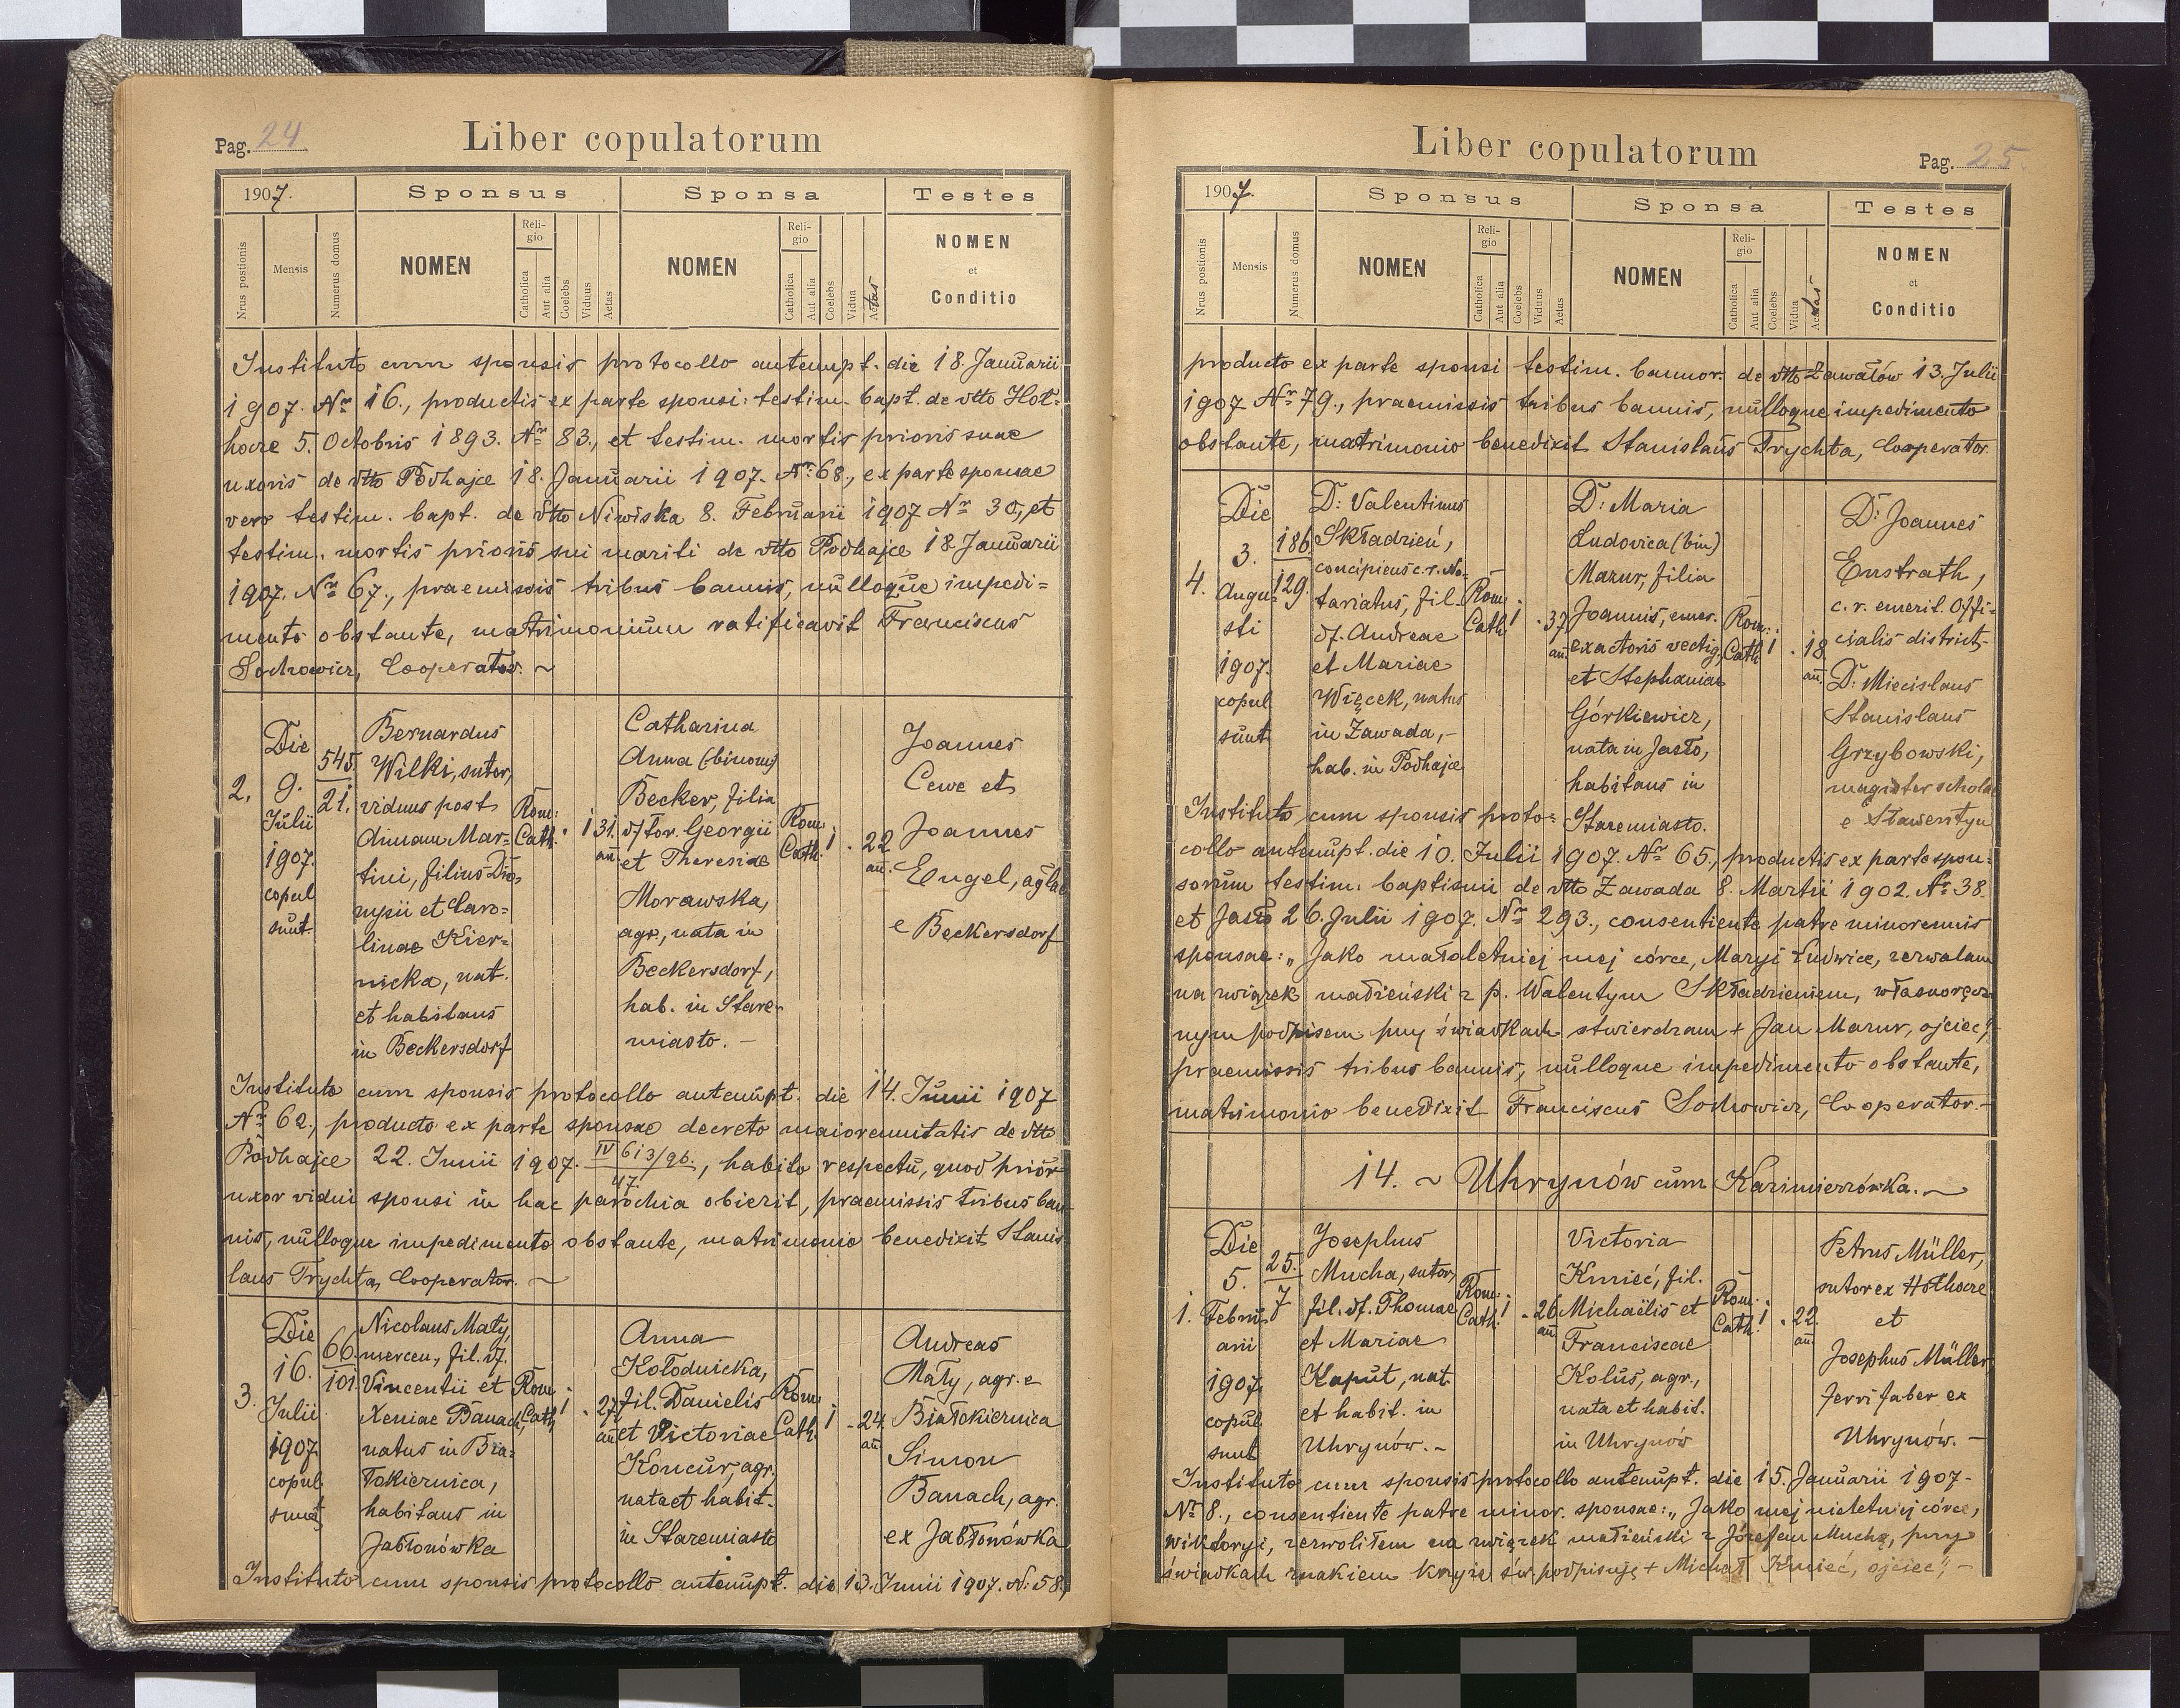 Pag. 24
Liber copulatorum
1907.
Sponsus
Sponsa
Testes
Nrus postionis
Mensis
Numerus domus
NOMEN
Religio
Catholica
Aut alia
Coelebs
Viduus
Aetas
NOMEN
Religio
Catholica
Aut alia
Coelebs
Vidua
Aetas
NOMEN
et
Conditio
Instituto cum sponsis protocollo antenupt. die 18. Januarii
1907. Nr 16., productis ex parte sponsi: testim. bapt. de dtto Hot-
hocre 5. Octobris 1893. Nr 83., et testim. mortis prioris suae
uxoris de dtto Podhajce 18. Januarii 1907. Nr: 68., ex parte sponsae
vero testim. bapt. de dtto Niwiska 8. Februarii 1907 Nr 30, et
testim. mortis prioris sui mariti de dtto Podhajce 18. Januarii
1907. Nr 67., praemissis tribus bannis, nulloque impedi=
mento obstante, matrimonium ratificavit Franciscus
Sochowicz, Cooperator. ~
2.
Die
9.
Julii
1907.
copul.
sunt.
545.
21.
Bernardus
Wilki, sutor,
viduus post
Annam Mar=
tini, filius Dio,
nysii et Caro=
linae Kier=
nicka, nat.
et habitans
in Beckersdorf
Rom:
Cath:
1
31.
an.
Catharina
Anna (binom)
Becker, filia
df tor. Georgii
et Theresiae
Morawska,
agr., nata in
Beckersdorf,
hab. in Stare-
miasto. -
Rom:
Cath:
1
22
an.
Joannes
Cewe et
Joannes
Engel, aglae
e Beckersdorf
Instituto cum sponsis protocollo antenupt. die 14. Junii 1907
Nr 62., producto ex parte sponsae decreto maiorennitatis de dtto
Podhajce 22. Junii 1907. IV 613/96., habito respectu, quod prior
47.
uxor vidui sponsi in hac parochia obierit, praemissis tribus ban
nis, nulloque impedimento obstante, matrimonio benedixit Stanis
laus Trychta, Cooperator. ~
3.
Die
16.
Julii
1907
copul.
sunt
66.
101.
Nicolaus Mały,
mercen., fil. df.
Vincentii et
Xeniae Banach,
natus in Bia=
łokiernica,
habitans in
Jabłonówka
Rom.
Cath.
1
27
an.
Anna
Kołodnicka,
fil. Danielis
et Victoriae
Koncur, agr.
nata et habit.
in Staremiasto
Rom.
Cath.
1
24.
an.
Andreas
Mały, agr. e
Białokiernica
Simon
Banach, agr.
ex Jabłonówka
Instituto cum sponsis protocollo antenupt. die 13. Junii 1907. N: 58.,
Liber copulatorum
Pag. 25.
1907.
Sponsus
Sponsa
Testes
Nrus postionis
Mensis
Numerus domus
NOMEN
Religio
Catholica
Aut alia
Coelebs
Viduus
Aetas
NOMEN
Religio
Catholica
Aut alia
Coelebs
Vidua
Aetas
NOMEN
et
Conditio
producto ex parte sponsi testim. bannor. de dtto Zawałów 13. Julii
1907 Nr 79., praemissis tribus bannis, nulloque impedimento
obstante, matrimonio benedixit Stanislaus Trychta, Cooperator.
4.
Die
3.
Augu-
sti
1907.
copul.
sunt
186
129.
D: Valentinus
Składzień,
concipiens c. r. No-
tariatus, fil.
df. Andreae
et Mariae
Więcek, natus
in Zawada, -
hab. in Podhajce
Rom.
Cath.
1
37
an.
D: Maria
Ludovica (bin)
Mazur, filia
Joannis, emer.
exactoris vectig,
et Stephaniae
Górkiewicz,
nata in Jasło,
habitans in
Staremiasto.
Rom:
Cath
1
18.
an.
D: Joannes
Enstrath,
c. r. emerit. offi-
cialis district-
D: Miecislaus
Stanislaus
Grzybowski,
magister scholae
e Sławentyn
Instituto cum sponsis proto=
collo antenupt. die 10. Julii 1907. Nr 65., productis ex parte spon=
sorum testim. baptismi de dtto Zawada 8. Martii 1902. Nr 38.
et Jasło 26. Julii 1907. Nr 293., consentiente patre minorennis
sponsae: „Jako małoletniej mej córce, Maryi Ludwice, zezwalam
na związek małżeński z p. Walentym Składzieniem, własnoręcz-
nym podpisem przy świadkach stwierdzam + Jan Mazur, ojciec",
praemissis tribus bannis, nulloque impedimento obstante,
matrimonio benedixit Franciscus Sochowicz, Cooperator. -
14. ~ Uhrynów cum Kazimierzówka. ~
1.
Die
5.
Febru-
arii
1907
copul.
sunt
25.
7
Josephus
Mucha, sutor,
fil. df. Thomae
et Mariae
Kaput, nat.
et habit. in
Uhrynów. -
Rom.
Cath.
1
26
an.
Victoria
Kmieć, fil.
Michaëlis et
Franciscae
Kolus, agr.,
nata et habit.
in Uhrynów
Rom.
Cath.
1
22.
an.
Petrus Müller,
sutor ex Hothocre
et
Josephus Müller
ferri faber ex
Uhrynów. -
Instituto cum sponsis protocollo antenupt. die 15. Januarii 1907-
Nr 8., consentiente patre minor. sponsae: „Jako mej nieletniej córce,
Wiktoryi, zezwoliłem na związek małżeński z Józefem Muchą, przy
świadkach znakiem krzyża św. podpisuję + Michał Kmieć, ojciec", -